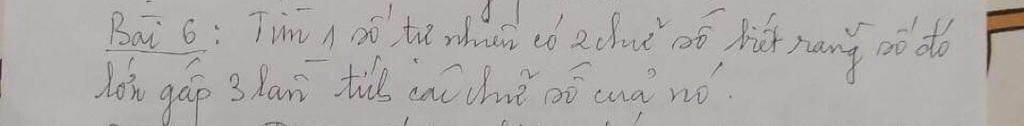 Bài 6: Tìm 1 số tự nhiên có 2 chữ số biết rằng số đó
lớn gấp 3 lần tích các chữ số của nó.